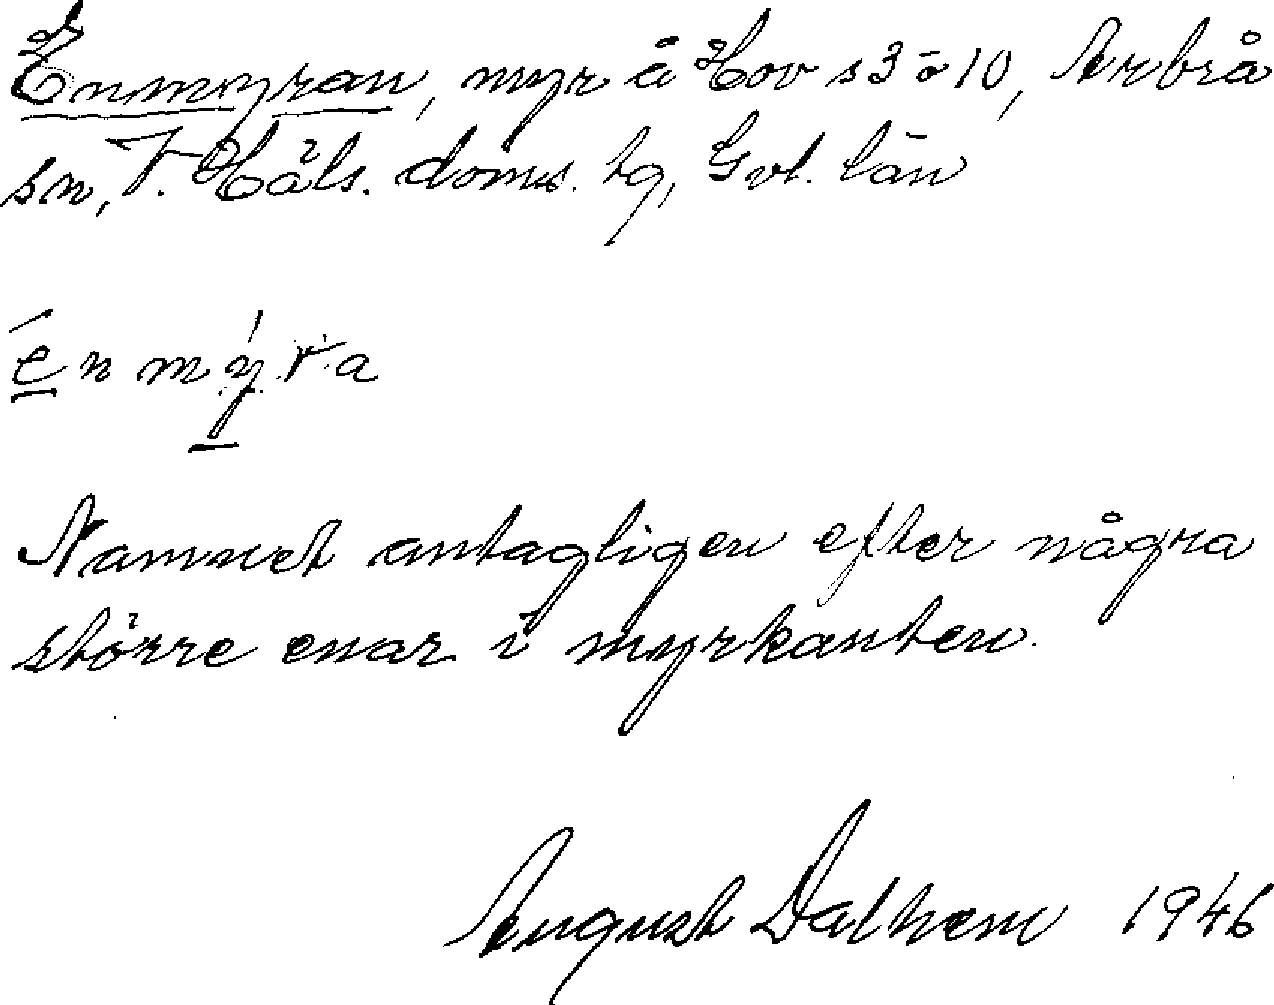 Enmyran, myr å Hov s 3 o 10, Arbrå
sn, V. Häls. doms. tg, Gvl. län
é n m ý r a
Namnet antagligen efter några
större enar i myrkanten.
August Dalhem 1946